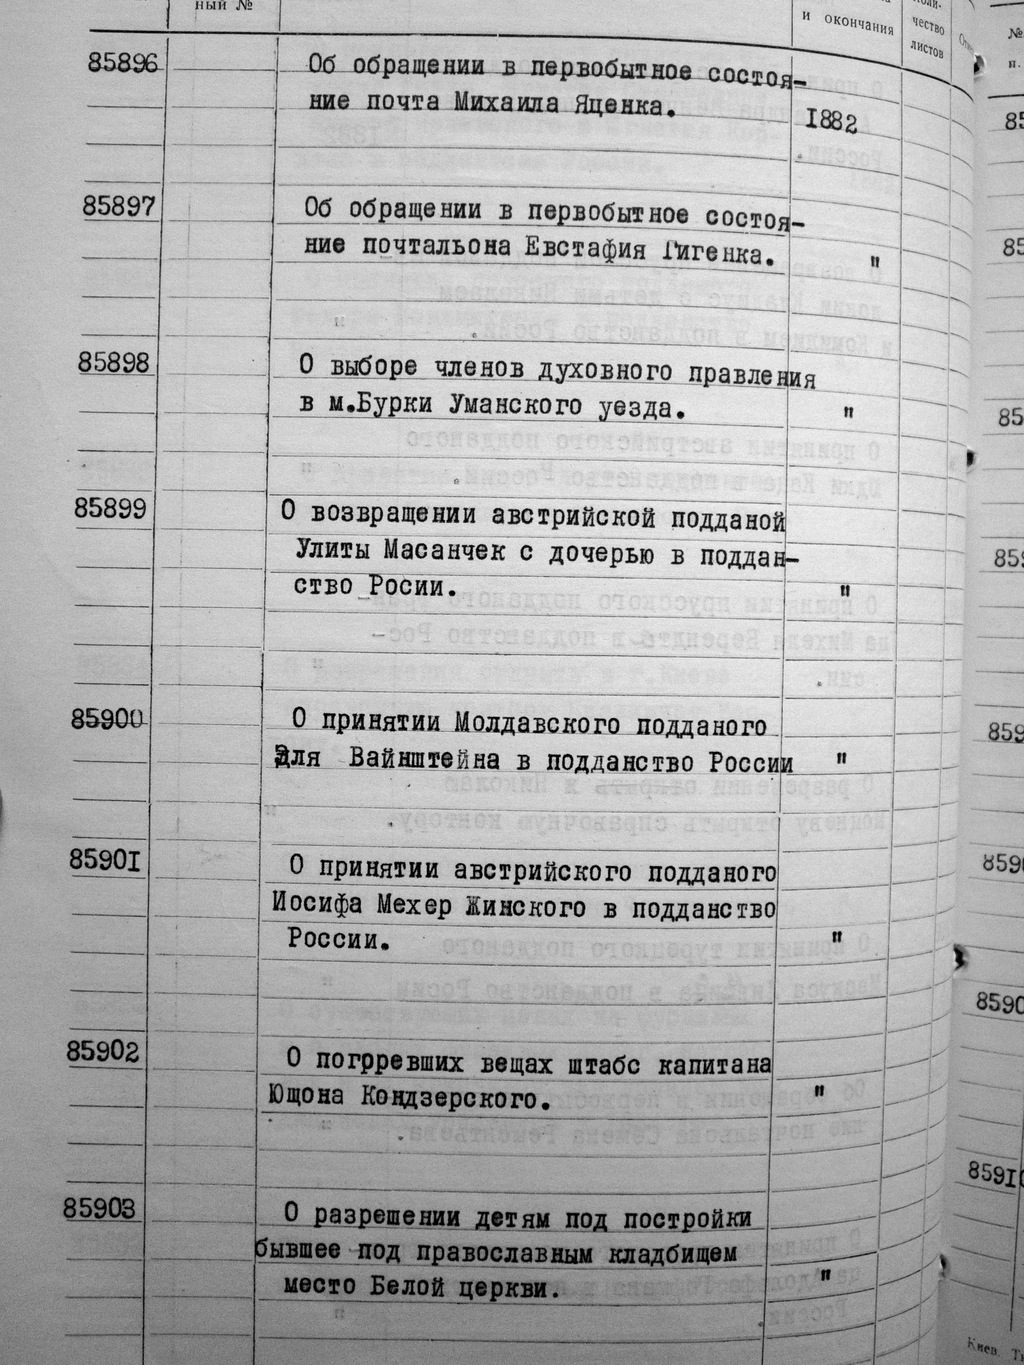 ный №
и окончания
чество
листов
№
п.
85896 Об обращении в первобытное состоя-
ние почта Михаила Яценка.
1882
85897 Об обращении в первобытное состоя-
ние почтальона Евстафия Гигенка. "
85898 О выборе членов духовного правления
в м.Бурки Уманского уезда. "
85899 О возвращении австрийской подданой
Улиты Масанчек с дочерью в поддан-
ство Росии. "
85900 О принятии Молдавского подданого
Эля Вайнштейна в подданство России "
85901 О принятии австрийского подданого
Иосифа Мехер Жинского в подданство
России. "
85902 О погорревших вещах штабс капитана
Ющона Кондзерского. "
85903 О разрешении детям под постройки
бывшее под православным кладбищем
место Белой церкви. "
Киев.